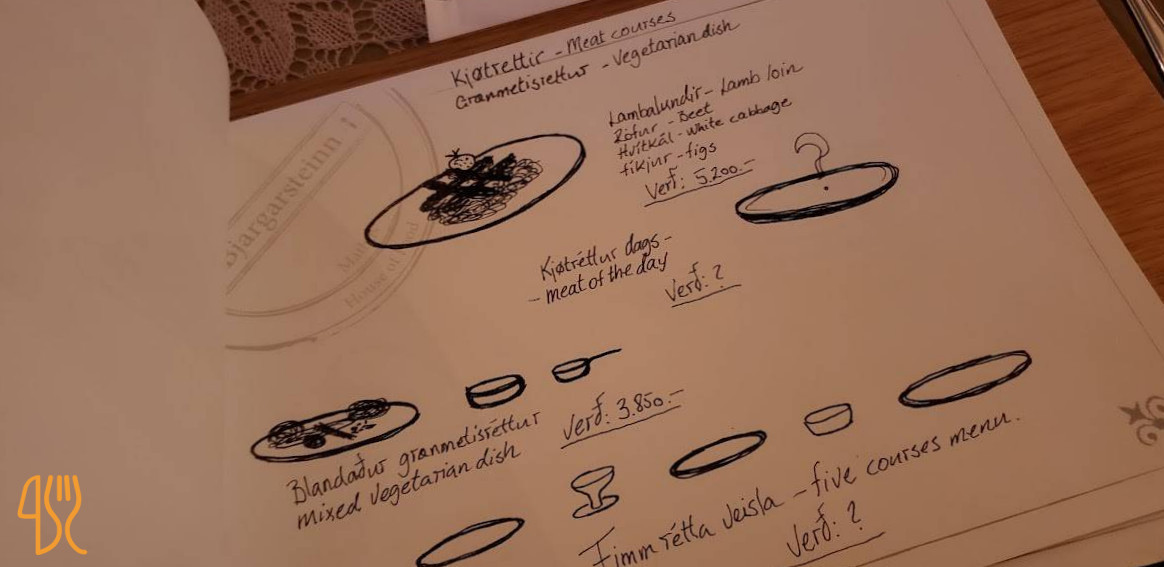 Kjøtrettir - Meat courses
Grænmetisrettur - Vegetarian dish
Lambalundir - Lamb loin
Rófur - Beet
Hvítkál - White cabbage
fíkjur - figs
Verð: 5.200.-
Bjargarsteinn
House of Food
Kjøtréttur dags -
- meat of the day
Verð: ?
Blandaður grænmetisréttur
mixed vegetarian dish
Verð: 3.850.-
Fimm rétta veisla - five courses menu.
Verð: ?